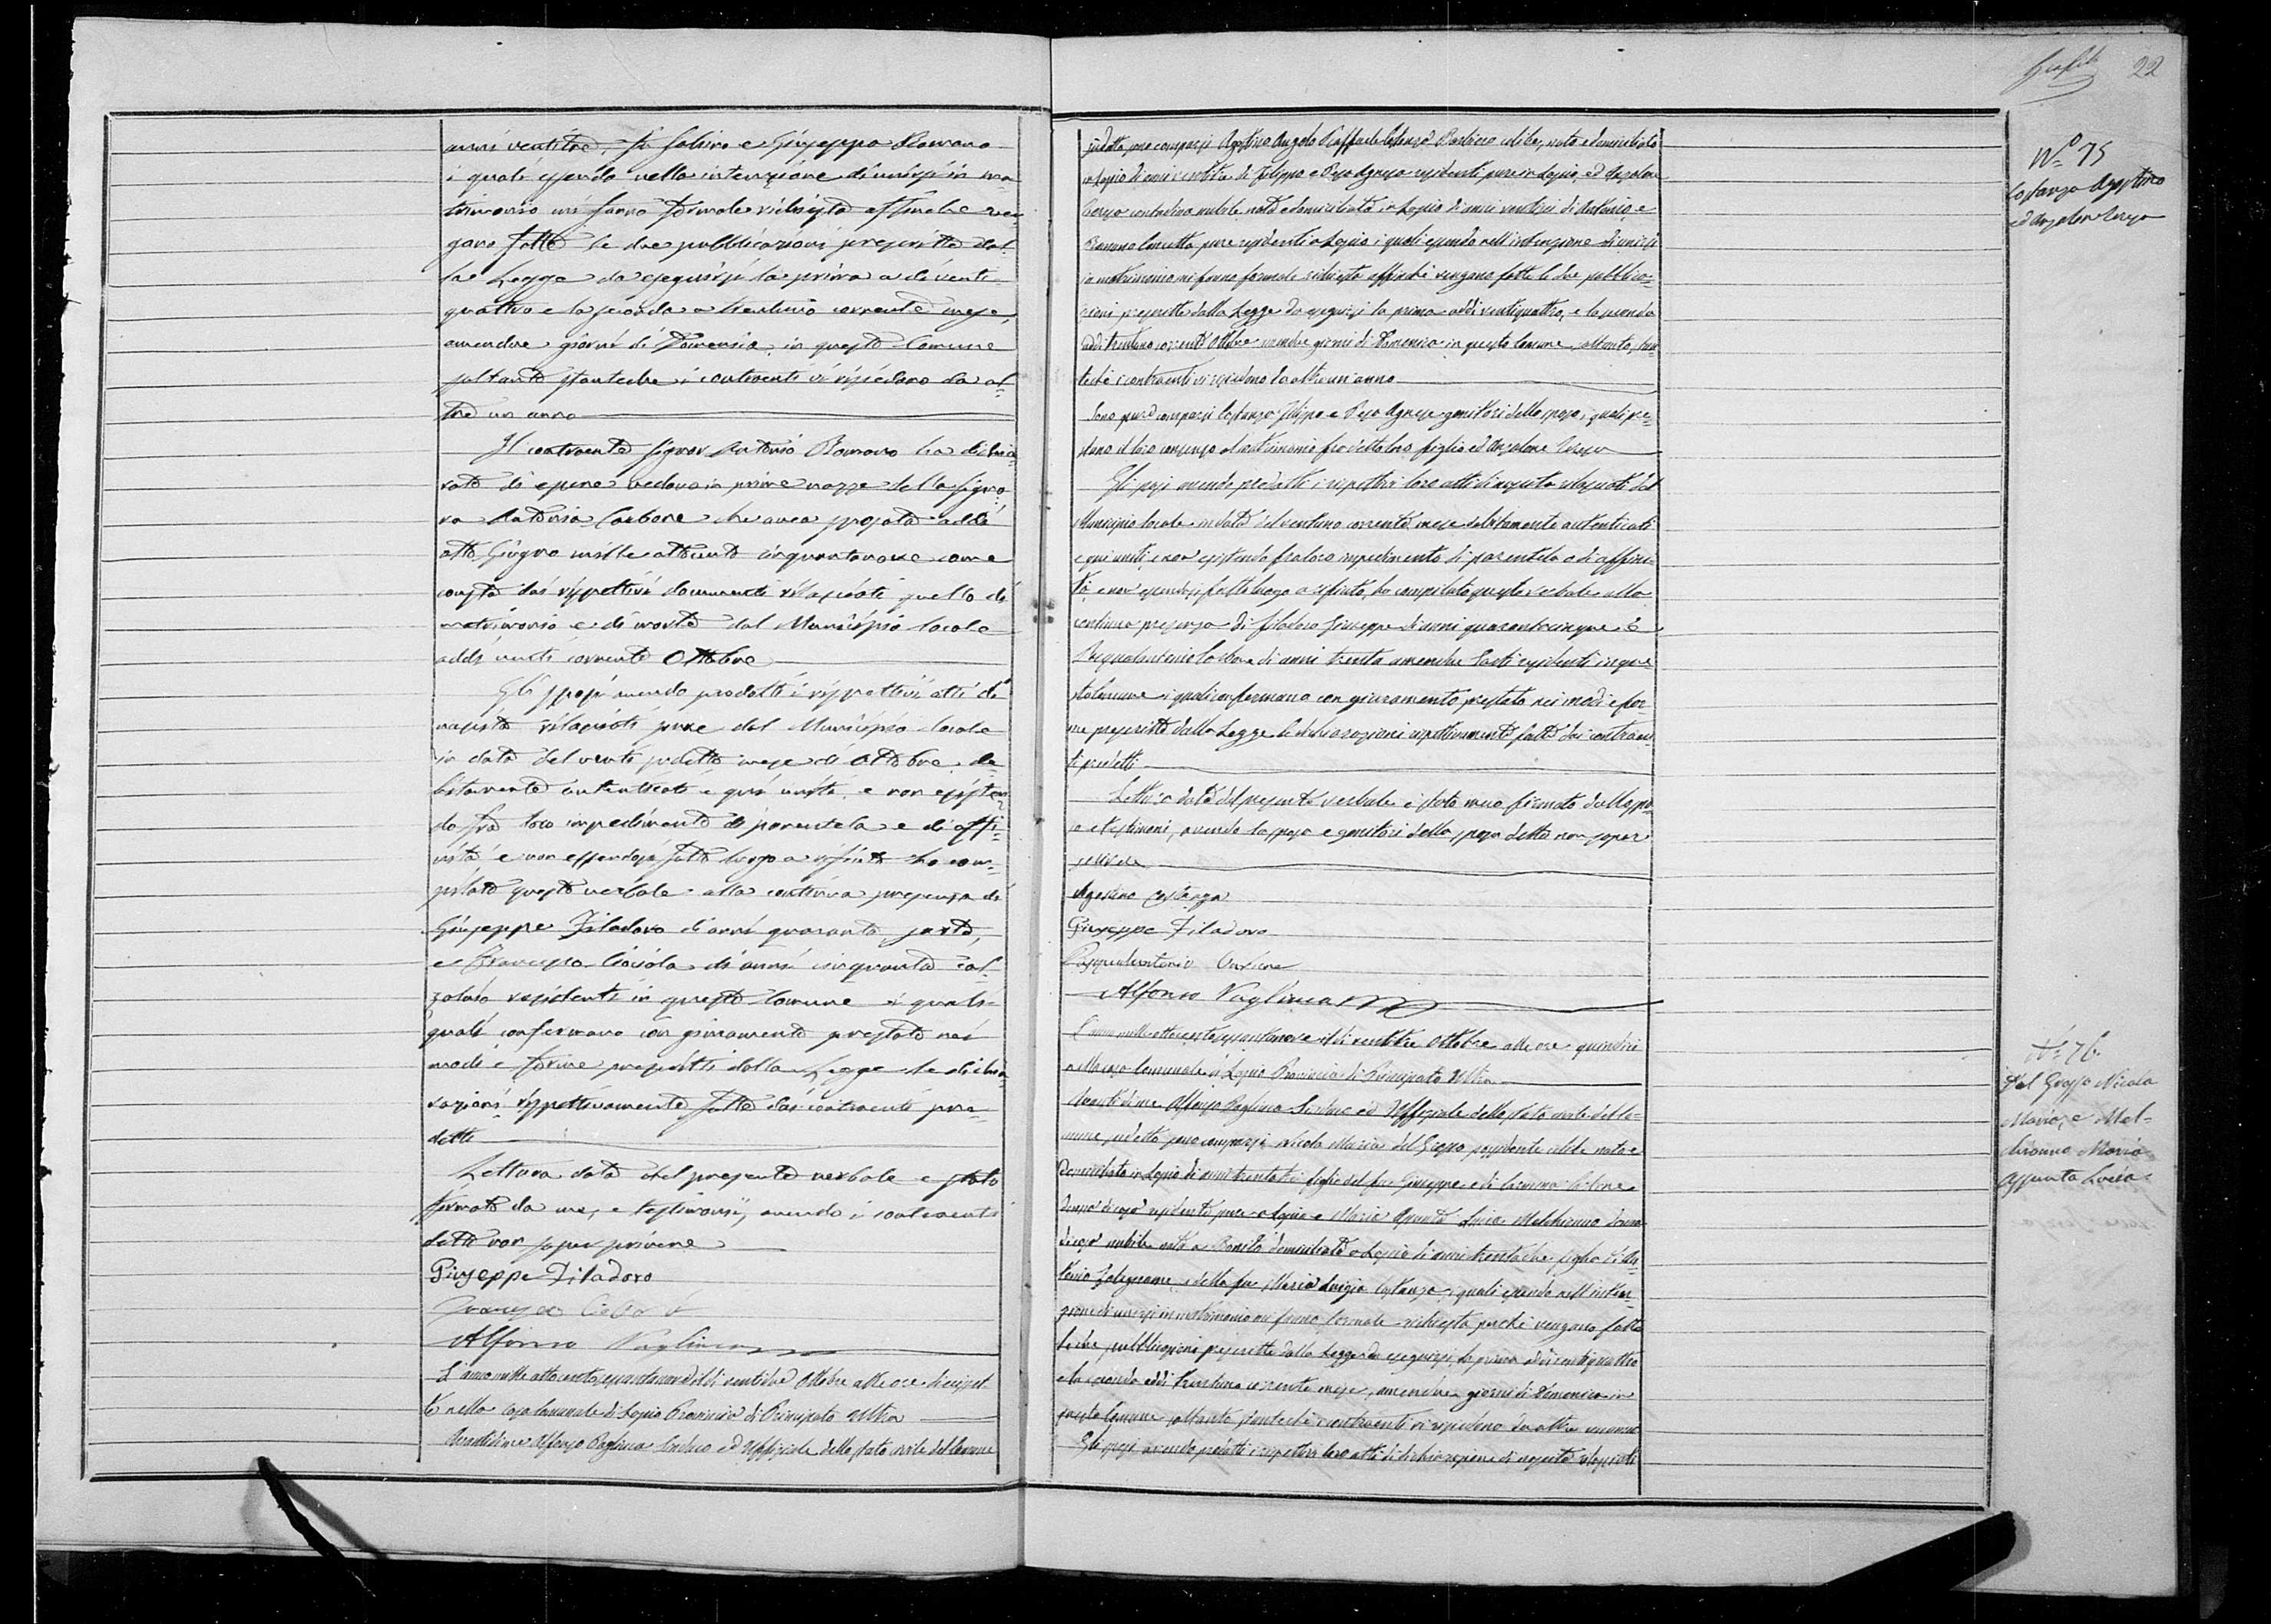 anni ventitre, fu Sabino e Giuseppa Romano
i quali essendo nella intenzione di unirsi in ma
trimonio mi fanno formale richiesta affinche ven
gano fatte le due pubblicazioni prescritte dal
la Legge da eseguirsi la prima a di venti
quattro e la seconda a trentuno corrente mese,
amendue giorni di Domenica, in questo Comune
soltanto stanteche i contraenti vi risiedono da ol
tre un anno
Il contraente signor Antonio Romano ha dichia
rato di essere vedovo in prime nozze della signo
ra Antonia Carbone che avea sposata addi
otto Giugno mille ottocento cinquantanove come
consta dai rispettivi documenti rilasciati quello di
matrimonio e di morte dal Municipio locale
addi venti corrente Ottobre
Gli sposi avendo prodotti i rispettivi atti di
nascita rilasciati pure dal Municipio locale
in data del venti predetto mese di Ottobre de
bitamente autenticati e qui uniti, e non esisten
do fra loro impedimento di parentela e di affi
nità e non essendosi fatto luogo a rifiuto ho com
pilato questo verbale alla continua presenza di
Giuseppe Filadoro di anni quaranta
e Francesco Ciciola di anni cinquanta Cal
zolaio residenti in questo Comune i quali
quali confermano con giuramento prestato nei
modi e forme prescritti dalla Legge le dichia
razioni rispettivamente fatte dai contraenti pre
detti
Lettura data del presente verbale e stato
firmato da me, e testimonii, avendo i contraenti
detto non saper scrivere
Giuseppe Filadoro
Francesco
Alfonso Pagliuca
L'anno mille ottocento sessantanove il di ventitre Ottobre alle ore dieciset
te nella casa Comunale di Lapio Provincia di Principato Ultra
Avanti di me Alfonso Pagliuca Sindaco ed Uffiziale dello stato civile del Comune
22
N° 75
Costanza Agostino
ed Anzalone Teresa
sudetto, sono comparsi Agostino Angelo Raffaele Costanza celibe, nato e domiciliato
in Lapio di anni di Filippo e Agnese residenti pure in Lapio, ed Anzalone
Teresa contadina nubile nata e domiciliata in Lapio di anni di Antonio e
Romano Concetta pure residenti a Lapio i quali essendo nell'intenzione di unirsi
in matrimonio mi fanno formale richiesta affinchè vengano fatte le due pubblica
zioni prescritte dalla Legge da eseguirsi la prima addi ventiquattro, e la seconda
addi trentuno corrente Ottobre amendue giorni di Domenica in questo Comune soltanto, stan
teche i contraenti vi risiedono da oltre un anno
Sono pure comparsi Costanza Filippo e Agnese genitori dello sposo, i quali pre
stano il loro consenso al matrimonio fra detto loro figlio ed Anzalone Teresa
Gli sposi avendo prodotti i rispettivi loro atti di nascita rilasciati dal
Municipio locale in data del ventuno corrente mese debitamente autenticati
e qui uniti, e non esistendo fra loro impedimento di parentela o di affini
tà, e non essendosi fatto luogo a rifiuto, ho compilato questo verbale alla
continua presenza di Filadoro Giuseppe di anni quarantacinque e
Pasqualantonio di anni trenta amendue Sarti residenti in que
sto Comune i quali confermano con giuramento prestato nei modi e for
me prescritte dalla Legge le dichiarazioni rispettivamente fatte dai contraen
ti predetti
Lettura data del presente verbale è stato meco firmato dallo spo
so e testimoni, avendo la sposa e genitori dello sposo detto non saper
scrivere
Agostino Costanza
Giuseppe Filadoro
Pasqualantonio
Alfonso Pagliuca
L'anno mille ottocento sessantanove il di ventitre Ottobre alle ore quindici
nella casa Comunale di Lapio Provincia di Principato Ultra
Avanti di me Alfonso Pagliuca Sindaco ed Uffiziale dello stato civile del Co
mune sudetto sono comparsi Nicola Maria del Grosso possidente celibe nato e
domiciliato in Lapio di anni figlio del fu Giuseppe e di
donna di casa residente pure a Lapio e Maria Assunta Lucia Melchionna donna
di casa nubile nata a Bonito domiciliata a Lapio di anni trentadue figlia di An
tonio falegname e della fu Maria Luigia Costanza, i quali essendo nell'inten
zione di unirsi in matrimonio mi fanno formale richiesta perchè vengano fatte
le due pubblicazioni prescritte dalla Legge da eseguirsi, la prima addi ventiquattro
e la seconda addi trentuno corrente mese, amendue giorni di Domenica in
questo Comune soltanto stanteche i contraenti vi risiedono da oltre un anno
Gli sposi avendo prodotti i rispettivi loro atti di dichiarazione di nascita rilasciati
N° 76
Del Grosso Nicola
Maria, e Mel-
chionna Maria
Assunta Lucia